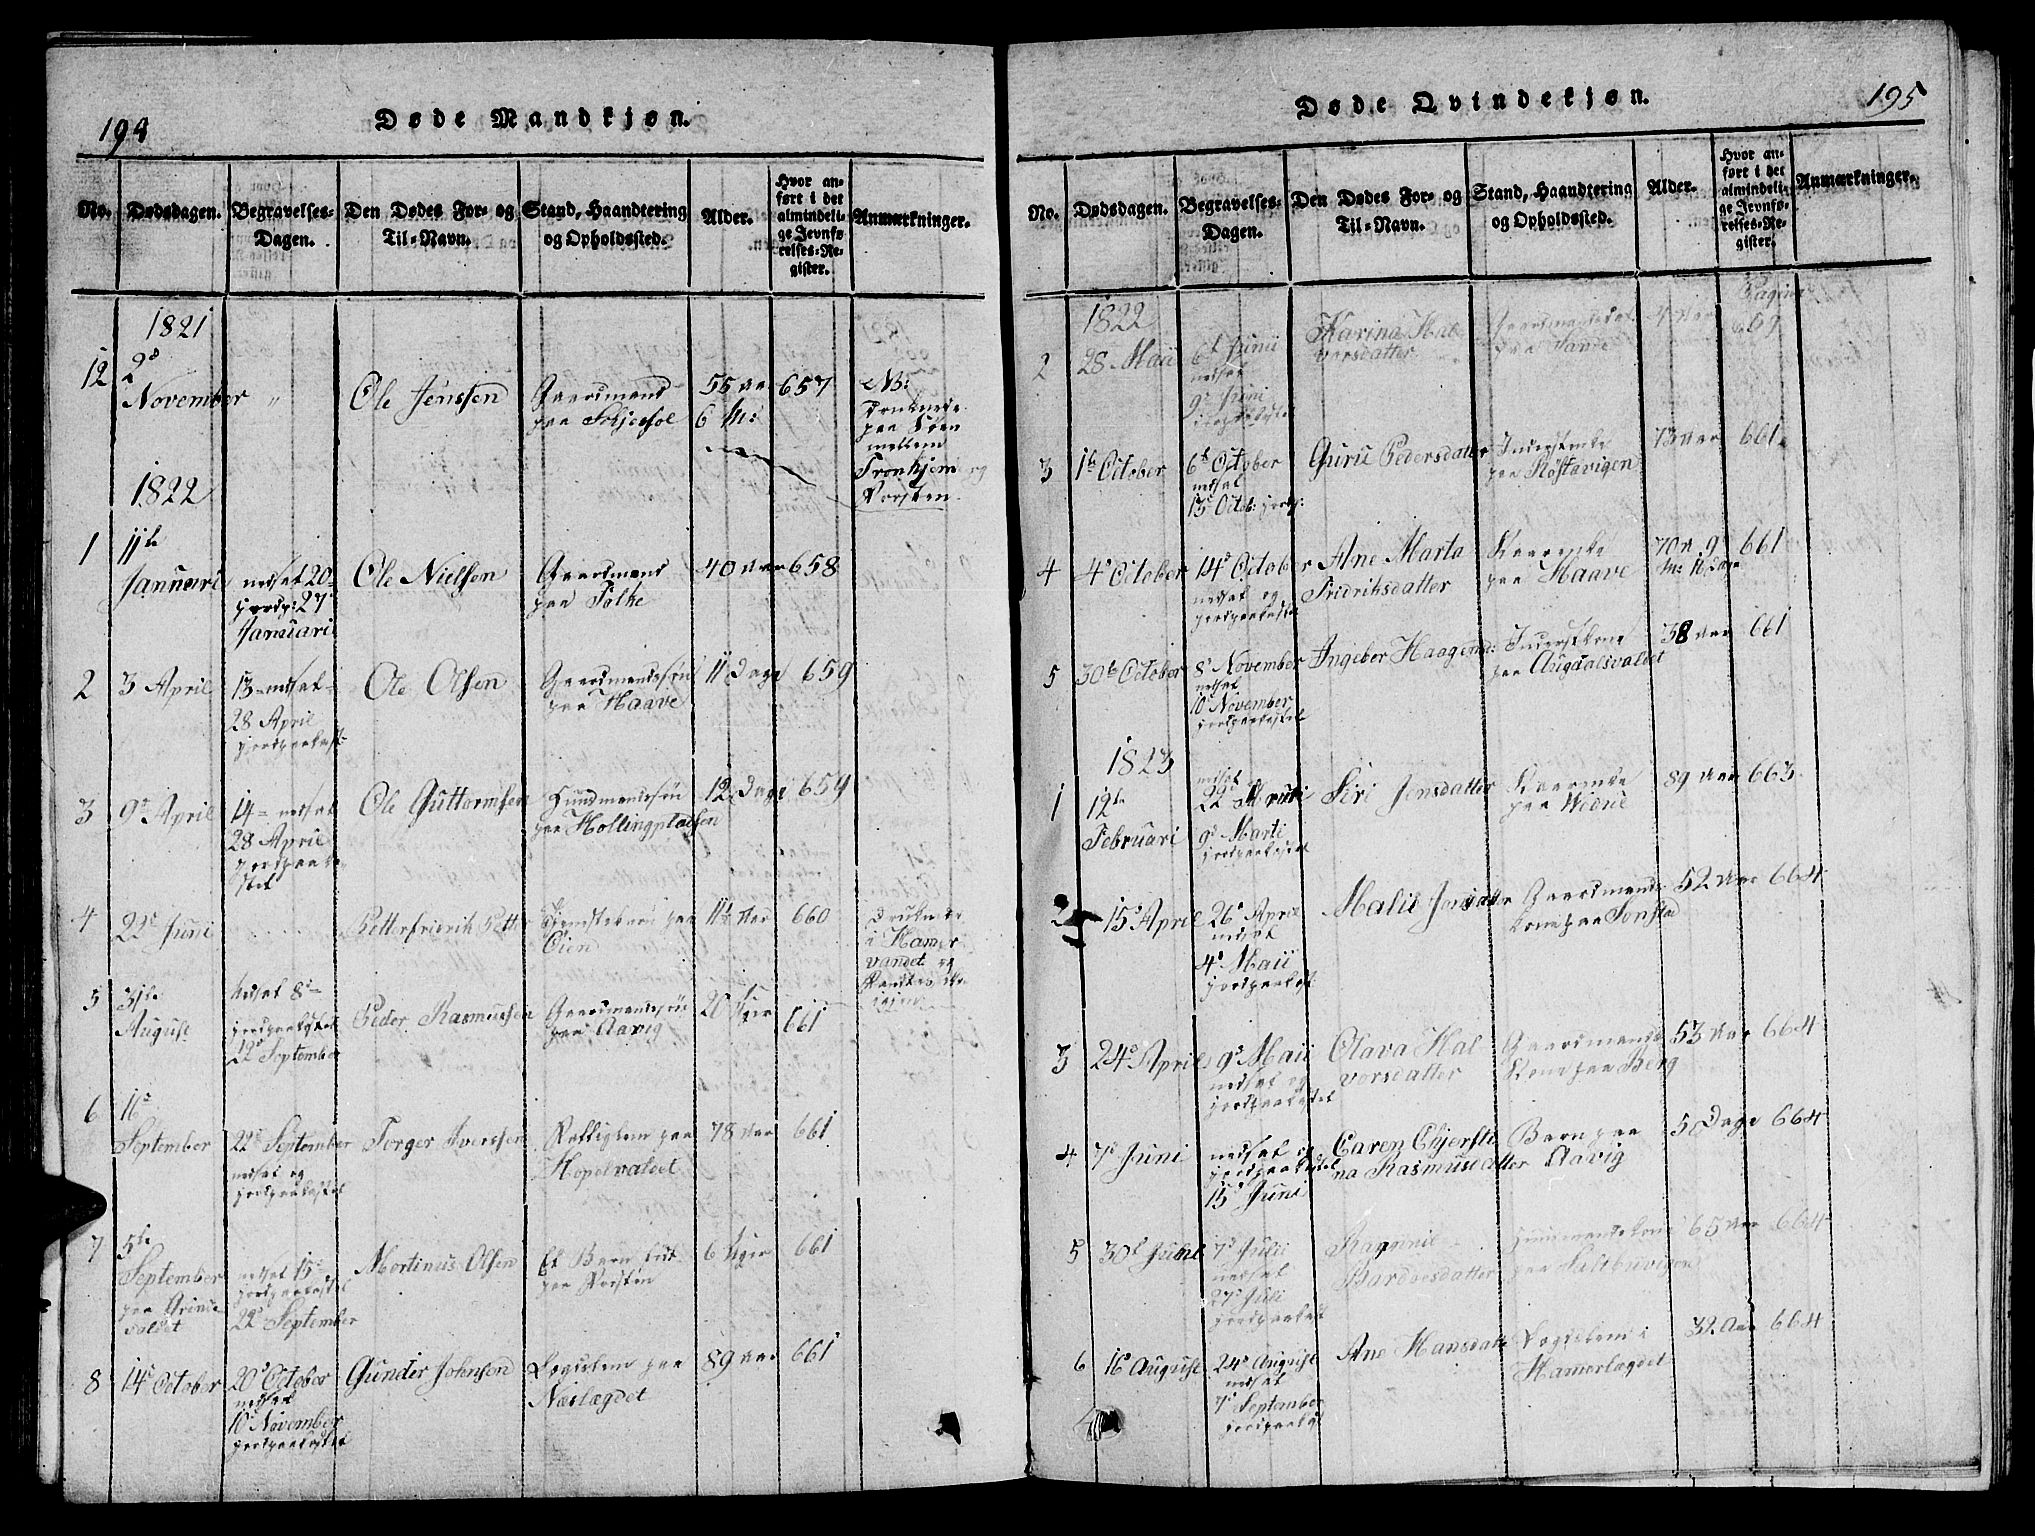 194
Døde Mandkjøn.
No. Dødsdagen. Begravelses-Dagen. Den Dødes For- og Til-Navn. Stand, Haandtering og Opholdssted. Alder. Hvor anført i det almindelige Jevnførelses-Register. Anmærkninger.
1821
12 2d November " Ole Jenssen Gaardmand paa Soljessøl 55 Aar 6 M: 657 NB: Druknede paa Søen mellem Tronhjem og Vorsten
1822
1 11te Januari nedsat 20 jordp: 27 Januari Ole Nielsen Gaardmand paa Folke 40 Aar 658
2 3 April 13 nedsat 28 April jordpaakast: Ole Olsen Gaardmandssøn paa Haave 11 Dage 659
3 9d April 14 nedsat 28 April jordpaakastet Ole Guttormsen Huusmandssøn paa Hollingpladsen 12 Dage 659
4 22d Juni Petterfridrik Petter Øien 11½ Aar 660 Druknet i Hamervandet og
5 31te August Nedsat 8d jordpaakastet 22d September Peder Rasmussen Gaardmandssøn paa Aavig 20 Uger 661
6 16d September 22d September nedsat og jordpaakastet Torger Iverssen Fattiglem paa Hopelvaldet 78 Aar 661
7 5te September paa valdet nedsat 15d jordpaakastet 22d September Mortinus Olsen Et Barn født paa Vorsten 6 Uger 661
8 14d October 20d October nedsat 10d November jordpaakastet Gunder Johnson Lægdslem paa Næslægdet 89 Aar 661
195
Døde Qvindekjøn.
No. Dødsdagen. Begravelses-Dagen. Den Dødes For- og Til-Navn. Stand, Haandtering og Opholdssted. Alder. Hvor anført i det almindelige Jevnførelses-Register. Anmærkninger.
Pagina
1822
2 28 Maii 6t Junii nedsat 9d Juni Karina Halvorsdatter paa Sande 4 Aar 659
3 1te October 6t October nedsat 13d Octob: jordp: Guru Pedersdatter Inderstenke paa Røstavigen 73 Aar 661
4 4d October 14d October nedsat og jordpaakastet Ane Marta Fridriksdatter Kaarenke paa Haave 70 A 9 M: 16 Dage 661
5 30te October 8d November nedsat 10d November jordpaakastet Ingeber Haagend: Inderstkone paa Augdalsvaldet 38 Aar 661
1823
1 12te Februari nedsat 22d Februari 9d Marti jordpaakastet Siri Jensdatter Kaarenke paa Wedrie 89 Aar 663
2 15d April 26d April nedsat 4d Maii jordpaakast Malie Jonsdatter Gaardmandskone paa Sonstad 52 Aar 664
3 24d April 9d Maii nedsat og jordpaakastet Olava Halvorsdatter Gaardmands Kone paa Berg 53 Aar 664
4 7d Juni nedsat og jordpaakastet 15d Juni Caren Chjerstina Rasmusdatter Barn paa Aavig 5 Dage 664
5 30t Juni 7d Julii nedsat 27d Juli jordpaakast Ragnnil Bardoesdatter Huusmandskone paa Saltbuvigen 65 Aar 664
6 16d August 24d August nedsat 7d September jordpaakast Ane Hansdatt Lægdslem i Hamerlægdet 32 Aar 664